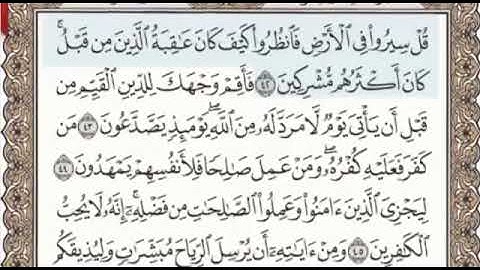 قُلْ سِيرُوا۟ فِى ٱلْأَرْضِ فَٱنظُرُوا۟ كَيْفَ كَانَ عَـٰقِبَةُ ٱلَّذِينَ مِن قَبْلُ ۚ
كَانَ أَكْثَرُهُم مُّشْرِكِينَ ٤٢ فَأَقِمْ وَجْهَكَ لِلدِّينِ ٱلْقَيِّمِ مِن
قَبْلِ أَن يَأْتِىَ يَوْمٌ لَّا مَرَدَّ لَهُۥ مِنَ ٱللَّهِ ۖ يَوْمَئِذٍ يَصَّدَّعُونَ ٤٣ مَن
كَفَرَ فَعَلَيْهِ كُفْرُهُۥ ۖ وَمَنْ عَمِلَ صَـٰلِحًا فَلِأَنفُسِهِمْ يَمْهَدُونَ ٤٤
لِيَجْزِىَ ٱلَّذِينَ ءَامَنُوا۟ وَعَمِلُوا۟ ٱلصَّـٰلِحَـٰتِ مِن فَضْلِهِۦٓ ۚ إِنَّهُۥ لَا يُحِبُّ
ٱلْكَـٰفِرِينَ ٤٥ وَمِنْ ءَايَـٰتِهِۦٓ أَن يُرْسِلَ ٱلرِّيَاحَ مُبَشِّرَٰتٍ وَلِيُذِيقَكُم